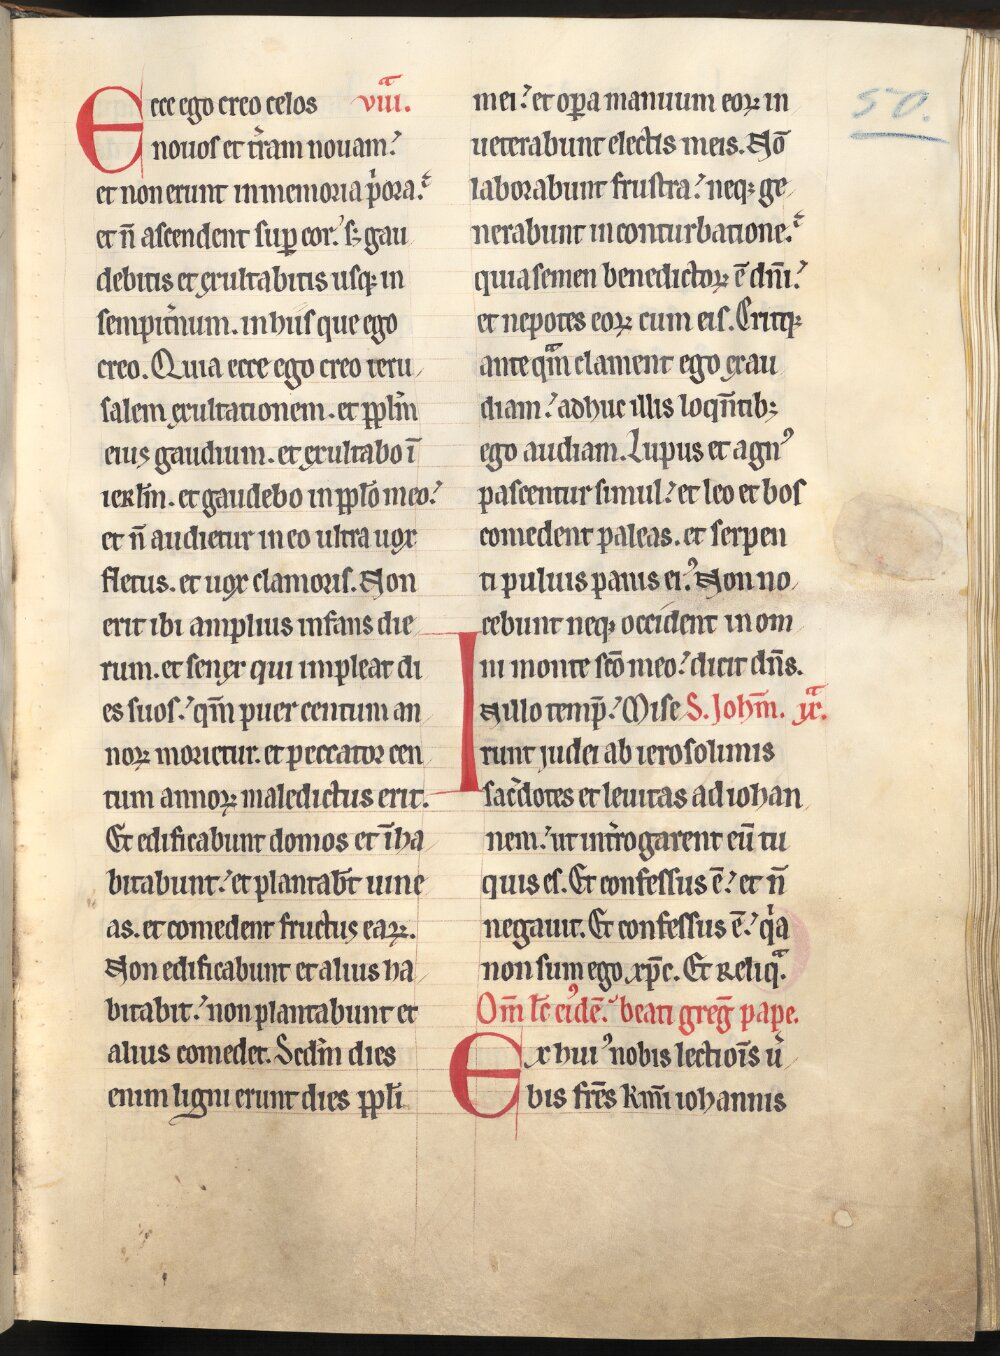 Ecce ego creo celos viiiͣ.
nouos et t̾ram nouam.
et non erunt in memoria p̾ora.
et n̄ ascendent suꝑ cor. sꝫ gau
debitis et exultabitis usqꝫ in
sempit̾num. in hiis que ego
creo. Quia ecce ego creo ieru
salem exultationem. et ppl̄m
eius gaudium. et exultabo ī
ierl̄m. et gaudebo in ppl̄o meo.
et n̄ audietur in eo ultra uox
fletus. et uox clamoris. Non
erit ibi amplius infans die
rum. et senex qui impleat di
es suos. qm̄ puer centum an
noꝝ morietur. et peccator cen
tum annoꝝ maledictus erit.
Et edificabunt domos et īha
bitabunt. et plantab̄t uine
as. et comedent fructus eaꝝ.
Non edificabunt et alius ha
bitabit. non plantabunt et
alius comedet. Sedm̄ dies
enim ligni erunt dies ppl̄i
mei. et oꝑa manuum eoꝝ in
ueterabunt electis meis. Nō
laborabunt frustra. neqꝫ ge
nerabunt in conturbatione.
quia semen benedictoꝝ ē dn̄i.
et nepotes eoꝝ cum eis. Eritqꝫ
ante qͣm clament ego exau
diam. adhuc illis loqn̄tibꝫ
ego audiam. Lupus et agnꝰ
pascentur simul. et leo et bos
comedent paleas. et serpen
ti puluis panis eiꝰ. Non no
cebunt neqꝫ occident in om
ni monte sc̄o meo. dicit dn̄s.
In illo temp̄. Mise S. Joh̄m. ixͣ.
runt judei ab ierosolimis
sac̾dotes et leuitas ad iohan
nem. ut int̾rogarent eū tu
quis es. Et confessus ē. et n̄
negauit. Et confessus ē. qͥa
non sum ego xp̄c. Et reliqͣ.
Om̄ lc̄ eiꝰdē. beati greḡ pape.
Ex huiꝰ nobis lectiōis u̾
bis fr̄es k̄mi iohannis
50.